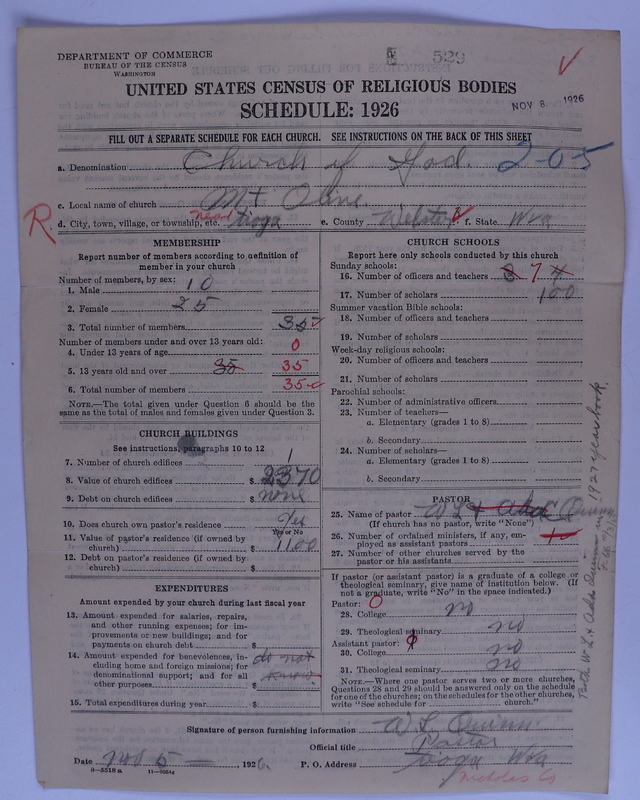 DEPARTMENT OF COMMERCE
BUREAU OF THE CENSUS
WASHINGTON
529
UNITED STATES CENSUS OF RELIGIOUS BODIES
SCHEDULE: 1926
NOV 8 1926
FILL OUT A SEPARATE SCHEDULE FOR EACH CHURCH. SEE INSTRUCTIONS ON THE BACK OF THIS SHEET
a. Denomination Church of God. 2-0-5
c. Local name of church Mt Olive
R d. City, town, village, or township, etc. near Tioga e. County Webster f. State Wva
MEMBERSHIP
Report number of members according to definition of
member in your church
Number of members, by sex:
1. Male 10
2. Female 25
3. Total number of members 35
Number of members under and over 13 years old:
4. Under 13 years of age 0
5. 13 years old and over 35 35
6. Total number of members 35
NOTE.—The total given under Question 6 should be the
same as the total of males and females given under Question 3.
CHURCH BUILDINGS
See instructions, paragraphs 10 to 12
7. Number of church edifices 1
8. Value of church edifices $ 2370
9. Debt on church edifices $ none
10. Does church own pastor's residence yes
Yes or No
11. Value of pastor's residence (if owned by
church) $ 1100
12. Debt on pastor's residence (if owned by
church) $
EXPENDITURES
Amount expended by your church during last fiscal year
13. Amount expended for salaries, repairs,
and other running expenses; for im-
provements or new buildings; and for
payments on church debt $
14. Amount expended for benevolences, in-
cluding home and foreign missions; for
denominational support; and for all
other purposes $ do not know
15. Total expenditures during year $
CHURCH SCHOOLS
Report here only schools conducted by this church
Sunday schools:
16. Number of officers and teachers 7
17. Number of scholars 100
Summer vacation Bible schools:
18. Number of officers and teachers
19. Number of scholars
Week-day religious schools:
20. Number of officers and teachers
21. Number of scholars
Parochial schools:
22. Number of administrative officers
23. Number of teachers—
a. Elementary (grades 1 to 8)
b. Secondary
24. Number of scholars—
a. Elementary (grades 1 to 8)
b. Secondary
PASTOR
25. Name of pastor W L & Ada Quinn
(If church has no pastor, write "None")
26. Number of ordained ministers, if any, em-
ployed as assistant pastors
27. Number of other churches served by the
pastor or his assistants
If pastor (or assistant pastor) is a graduate of a college or
theological seminary, give name of institution below. (If
not a graduate, write "No" in the space indicated.)
Pastor: 0
28. College no
29. Theological seminary no
Assistant pastor:
30. College no
31. Theological seminary no
NOTE.—Where one pastor serves two or more churches,
Questions 28 and 29 should be answered only on the schedule
for one of the churches; on the schedules for the other churches,
write "See schedule for church."
Both W L & Adda Quinn in 1927 yearbook
Signature of person furnishing information W L Quinn
Official title Pastor
Date Nov 5, 1926. P. O. Address Tioga Wva
Nicholas Co
8-5518a